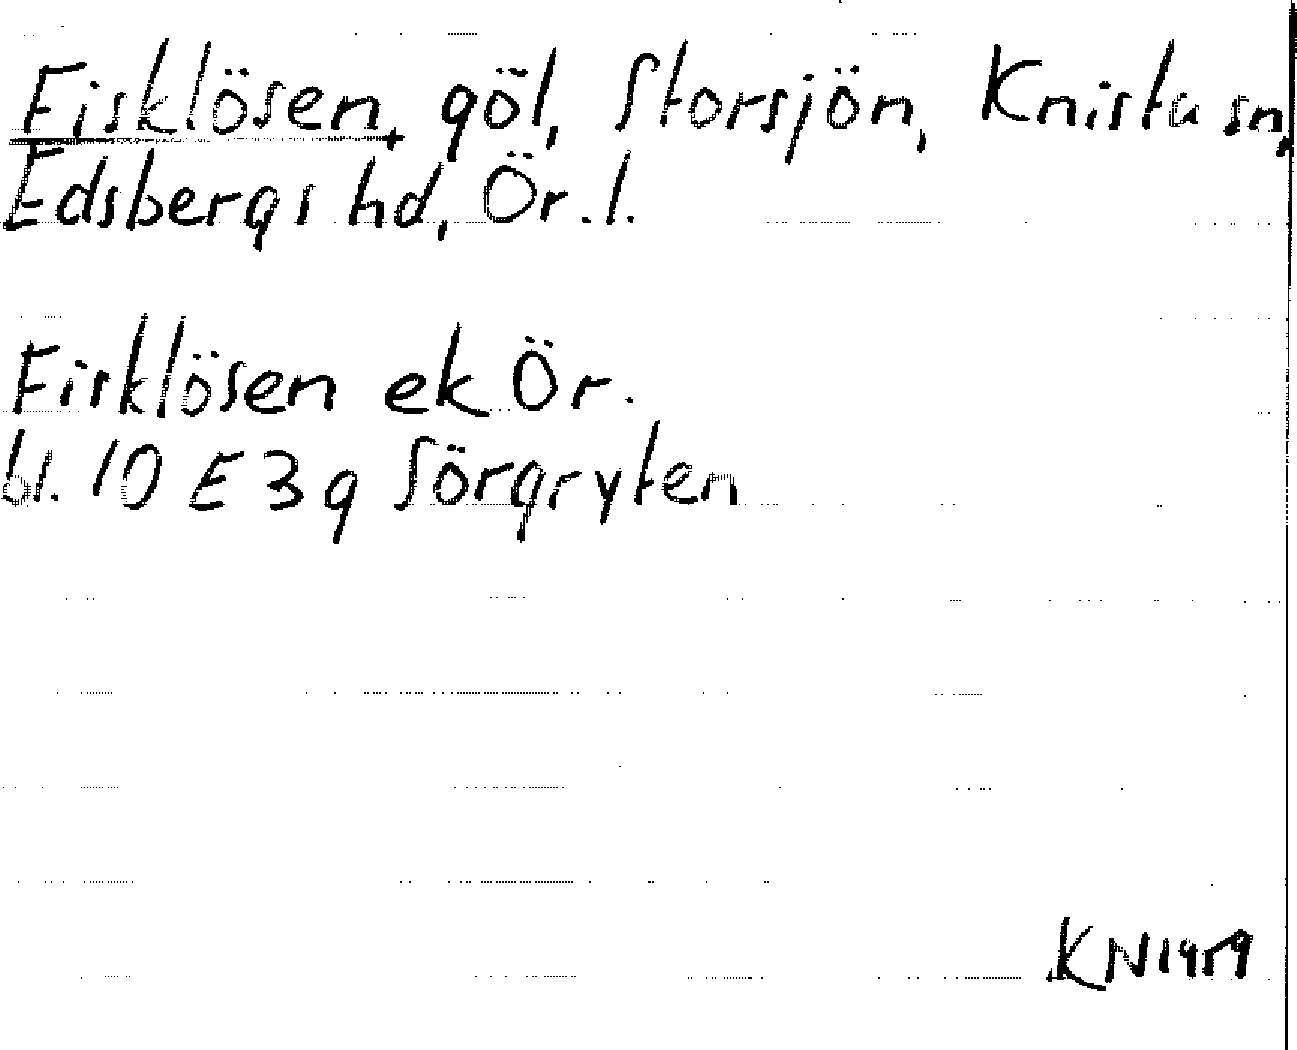 Fisklösen, göl, Storsjön, Knista sn,
Edsbergs hd, Ör. l.
Fisklösen ek Ör.
bl. 10 E 3 g Sörgryten
KN 1959